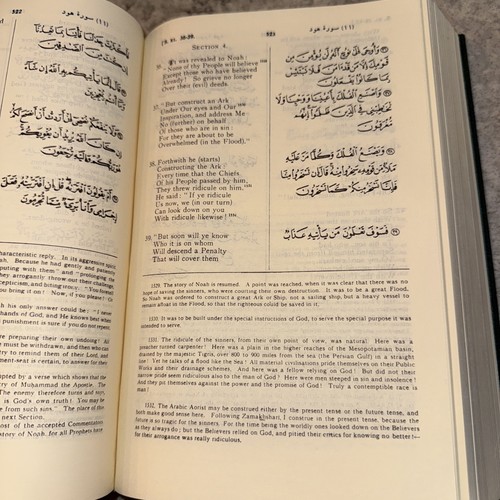 522
(١١) سورة هود
فَأَكْثَرْتَ جِدَالَنَا فَأْتِنَا بِمَا تَعِدُنَا
مِنَ الصَّادِقِينَ
قَالَ إِنَّمَا يَأْتِيكُم بِهِ اللَّهُ إِن شَاءَ
بِمُعْجِزِينَ
وَلَا يَنفَعُكُمْ نُصْحِي إِنْ أَرَدتُّ أَنْ أَنصَحَ لَكُمْ
إِن كَانَ اللَّهُ يُرِيدُ أَن يُغْوِيَكُمْ
هُوَ رَبُّكُمْ وَإِلَيْهِ تُرْجَعُونَ
أَمْ يَقُولُونَ افْتَرَاهُ قُلْ إِنِ افْتَرَيْتُهُ فَعَلَيَّ
إِجْرَامِي وَأَنَا بَرِيءٌ مِّمَّا تُجْرِمُونَ
characteristic reply. In its aggressive spirit
Because he had gently and patiently
"disputing with them" and "prolonging
they arrogantly throw out their challenge
scepticism, and biting irony: "You
bring it on! Now, if you please! Or
his only answer could be: "I never
hands of God, and He knows best when
punishment is sure if you do not repent.
are preparing their own undoing! All
must be withdrawn, and they who
try to remind them of their Lord, and
judgment-seat is certain, to answer for their
by a verse which shows that the
story of Muhammad the Apostle. The
The enemy therefore turns and says,
is God's own truth! You may be
from such sins." The place of this
next Section.
most of the accepted Commentators
story of Noah, for all Prophets have
[S. XI. 36-39.
523
(١١) سورة هود
SECTION 4.
36. It was revealed to Noah:
"None of thy People will believe
Except those who have believed
Already! So grieve no longer
Over their (evil) deeds.
37. "But construct an Ark
Under Our eyes and Our
Inspiration, and address Me
No (further) on behalf
Of those who are in sin:
For they are about to be
Overwhelmed (in the Flood)."
38. Forthwith he (starts)
Constructing the Ark:
Every time that the Chiefs
Of his People passed by him,
They threw ridicule on him. 1531
He said: "If ye ridicule
Us now, we (in our turn)
Can look down on you
With ridicule likewise! 1532
39. "But soon will ye know
Who it is on whom
Will descend a Penalty
That will cover them
وَأُوحِيَ إِلَىٰ نُوحٍ أَنَّهُ لَن يُؤْمِنَ مِن
قَوْمِكَ إِلَّا مَن قَدْ آمَنَ فَلَا تَبْتَئِسْ
بِمَا كَانُوا يَفْعَلُونَ
وَاصْنَعِ الْفُلْكَ بِأَعْيُنِنَا وَوَحْيِنَا وَلَا
تُخَاطِبْنِي فِي الَّذِينَ ظَلَمُوا إِنَّهُم
مُّغْرَقُونَ
وَيَصْنَعُ الْفُلْكَ وَكُلَّمَا مَرَّ عَلَيْهِ
مَلَأٌ مِّن قَوْمِهِ سَخِرُوا مِنْهُ قَالَ إِن تَسْخَرُوا مِنَّا
فَإِنَّا نَسْخَرُ مِنكُمْ كَمَا تَسْخَرُونَ
فَسَوْفَ تَعْلَمُونَ مَن يَأْتِيهِ عَذَابٌ
1529. The story of Noah is resumed. A point was reached, when it was clear that there was no
hope of saving the sinners, who were courting their own destruction. It was to be a great Flood.
So Noah was ordered to construct a great Ark or Ship, not a sailing ship, but a heavy vessel to
remain afloat in the Flood, so that the righteous could be saved in it.
1530. It was to be built under the special instructions of God, to serve the special purpose it was
intended to serve.
1531. The ridicule of the sinners, from their own point of view, was natural. Here was a
preacher turned carpenter! Here was a plain in the higher reaches of the Mesopotamian basin,
drained by the majestic Tigris, over 800 to 900 miles from the sea (the Persian Gulf) in a straight
line! Yet he talks of a flood like the Sea! All material civilizations pride themselves on their Public
Works and their drainage schemes. And here was a fellow relying on God! But did not their
narrow pride seem ridiculous also to the man of God? Here were men steeped in sin and insolence!
And they pit themselves against the power and the promise of God! Truly a contemptible race is
man!
1532. The Arabic Aorist may be construed either by the present tense or the future tense, and
both make good sense here. Following Zamakhshari, I construe in the present tense, because the
future is so tragic for the sinners. For the time being the worldly ones looked down on the Believers
as they always do; but the Believers relied on God, and pitied their critics for knowing no better!—
for their arrogance was really ridiculous.